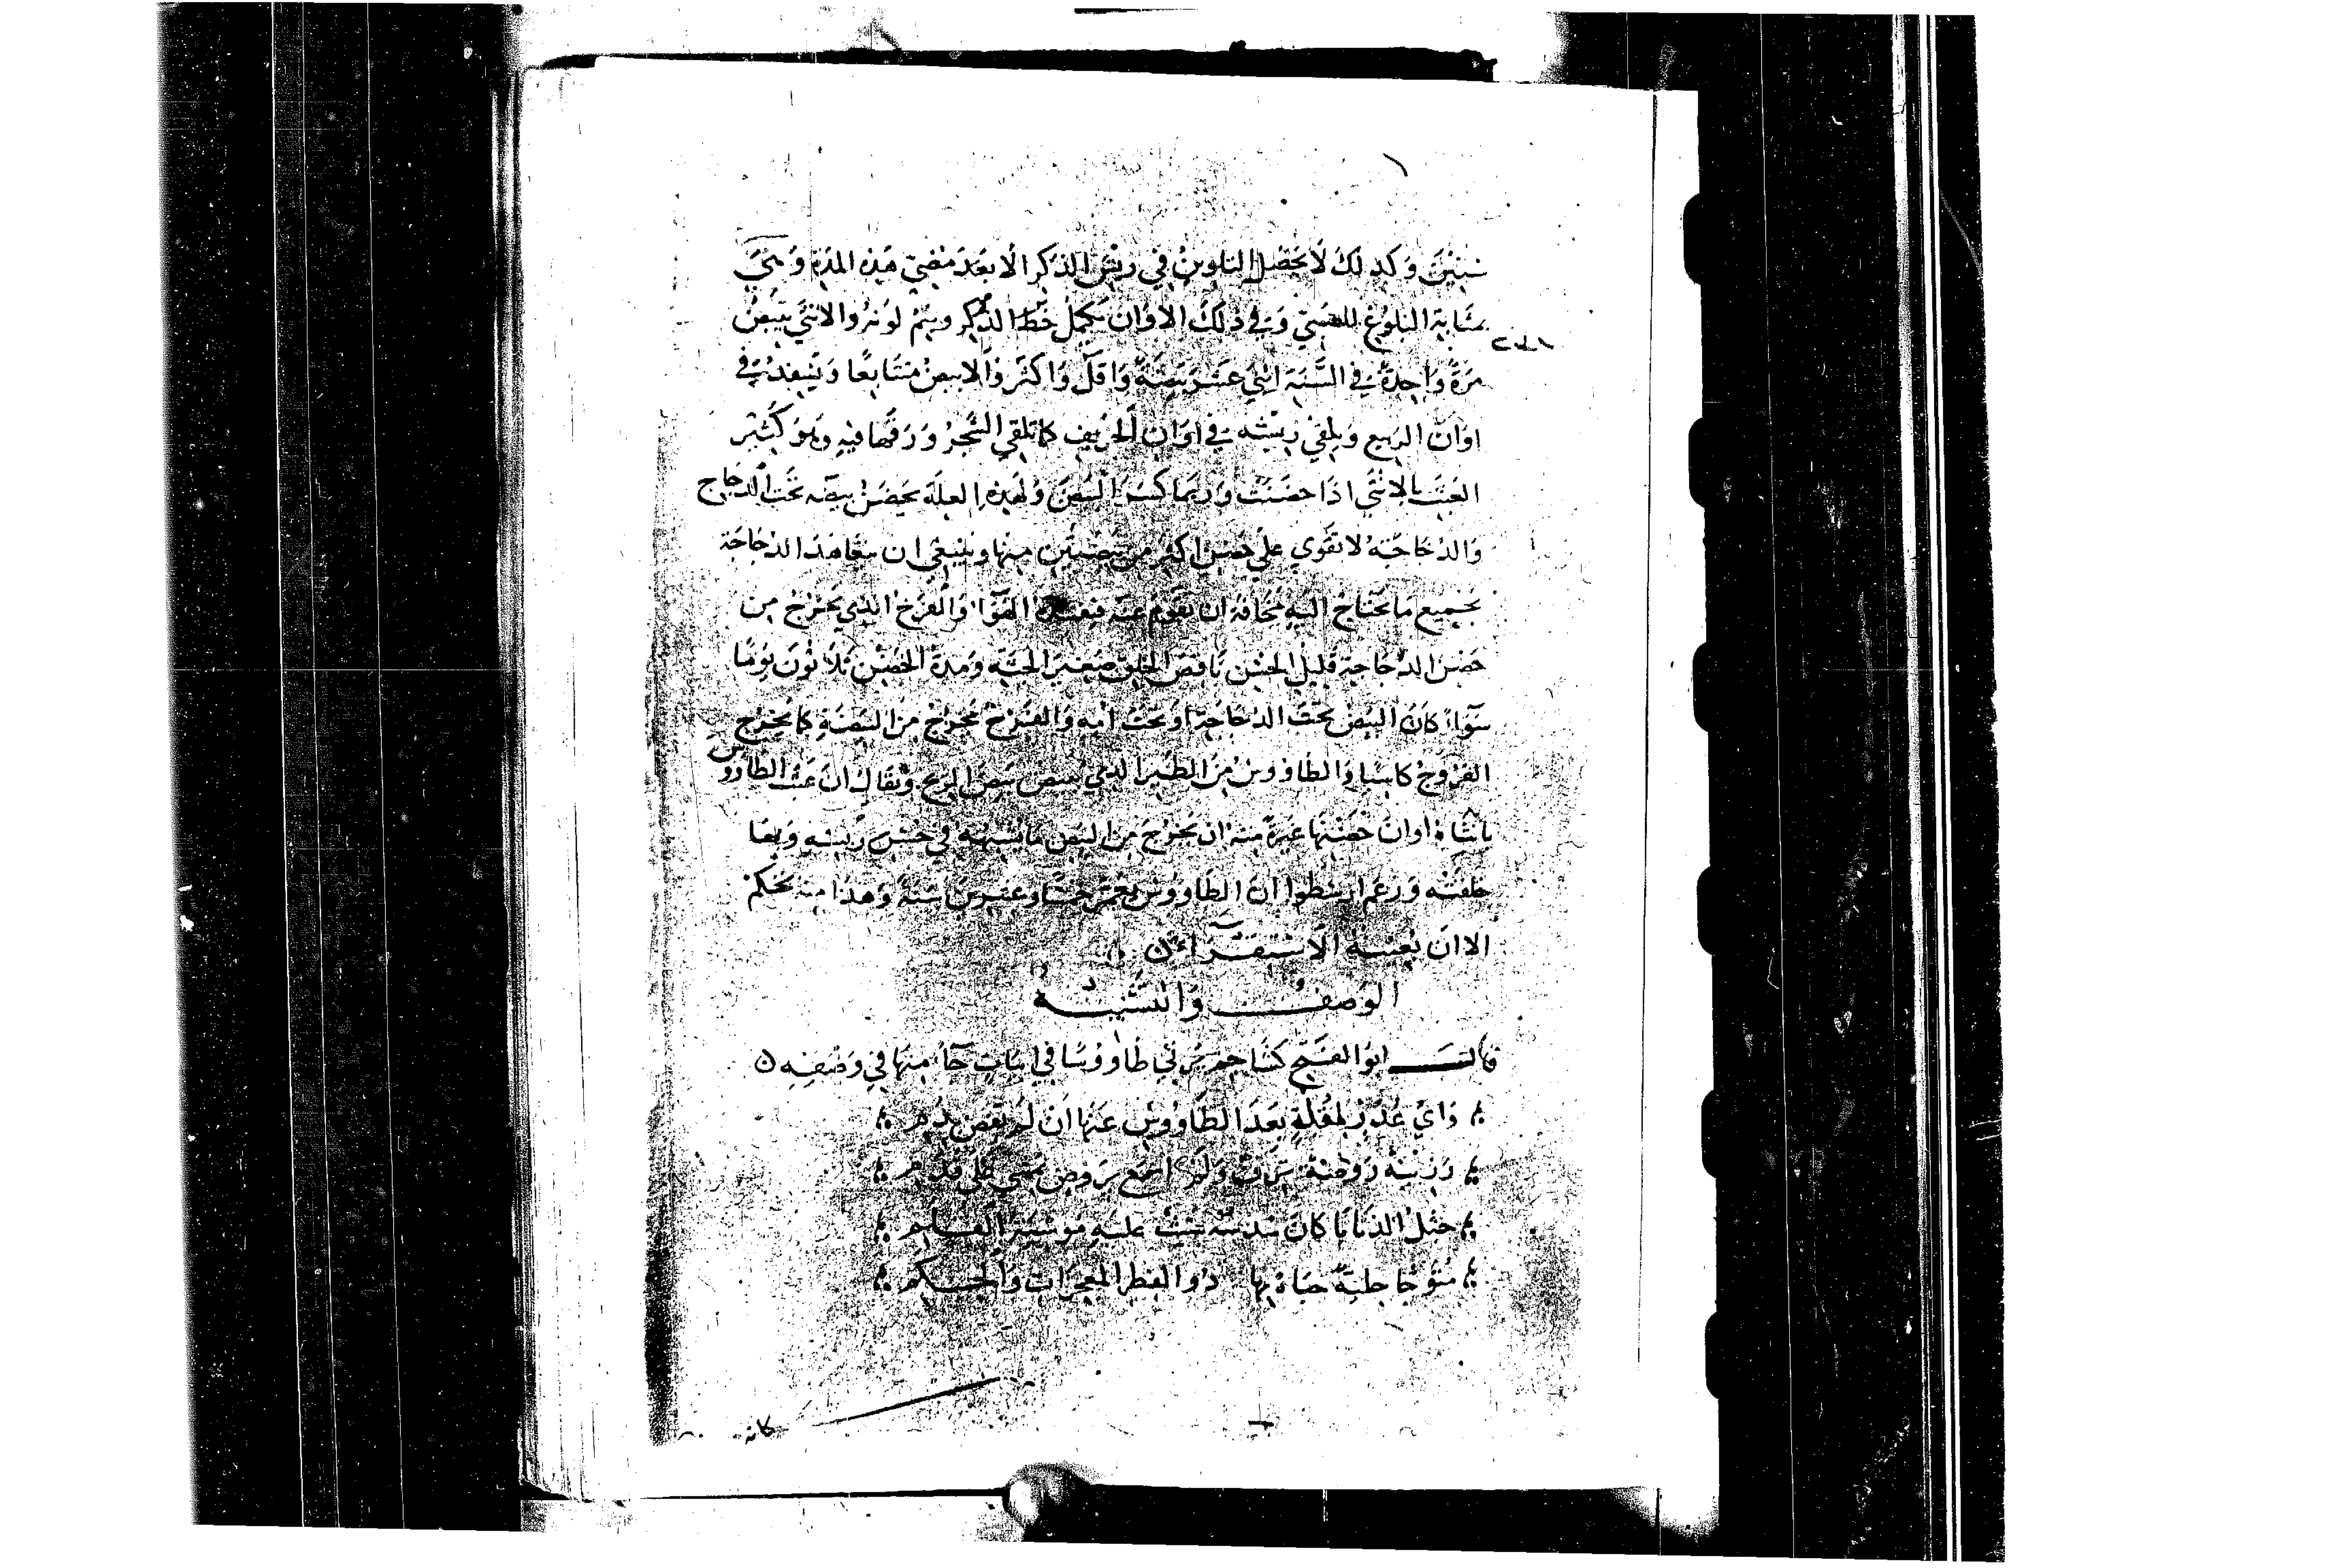 سنين وكذلك لا يحصل التلوين في ريش الذكر الا بعد مضي هذه المدة وهي
بمثابة البلوغ للصبي وفي ذلك الاوان يكمل خط الذكر ويتم لونه والانثي تبيض
مرة واحدة في السنة اثني عشر بيضة واقل واكثر ولا تبيض متتابعا ويسفد في
اوان الربيع ويلقي ريشه في اوان الخريف كما تلقي الشجر ورقها فيه وهو كثير
العبث بالانثي اذا حضنت وربما كسر البيض ولهذه العلة يحضن بيضه تحت الدجاج
والدجاجة لا تقوي علي حضن اكثر من بيضتين منها وينبغي ان يتعاهد الدجاجة
بجميع ما تحتاج اليه مخافة ان تقوم عنه فيفسده الهوآ والفرخ الذي يخرج من
حضن الدجاجة قليل الحسن ناقص الخلق صغير الجثة ومدة الحضن ثلاثون يوما
سوآء كان البيض تحت الدجاجة او تحت امه والفرخ يخرج من البيضة كما يخرج
الفروج كاسيا والطاووس من الطير الذي يبيض بيض الريح ويقال ان عبث الطاووس
بانثاه اوان حضنها غيرة منه ان يخرج من البيض ما يشبهه في حسن ريشه وبها
خلقته وزعم ارسطوا ان الطاووس يعمر خمسا وعشرين سنة وهذا منه تحكم
الا ان يعينه الاستقرآء
الوصف والتشبيه
قال ابو الفتح كشاجم يرثي طاووسا في ابيات جآء منها في وصفه
واي عذر لمقلة بعد الطاووس عنها ان لم تفض بدم
رزيته روضة ترف ولم اسمع بروض يمشي علي قدم
جثل الذنابا كان سندسة سنت عليه موشية العلم
متوجا حلية حباه بها ذو الفطر المعجزات والحكم
كانه